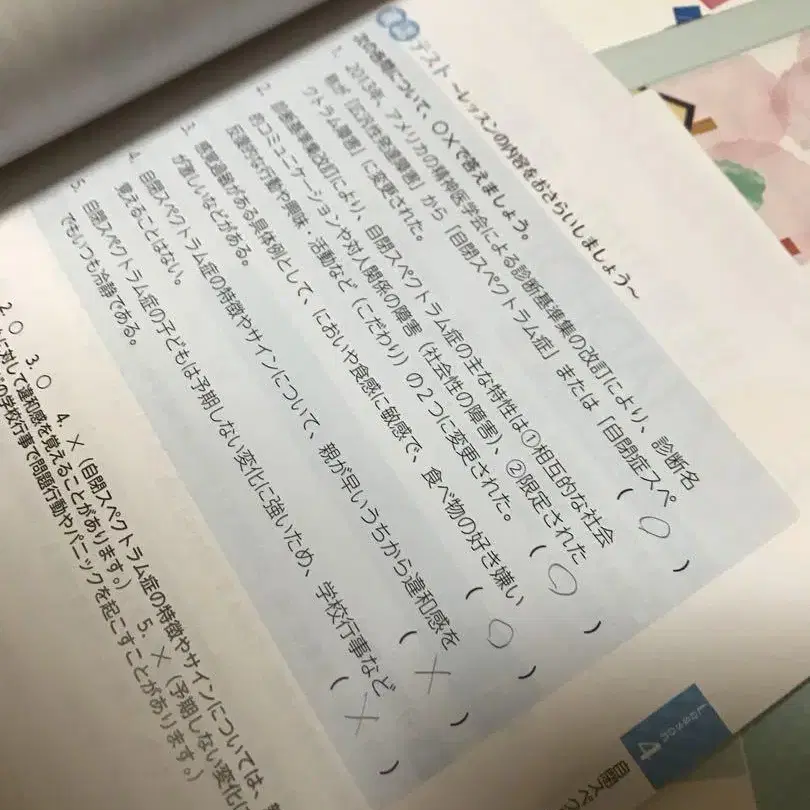 テスト ~レッスンの内容をおさらいしましょう~
次の各問について、○×で答えましょう。
1. 2013年、アメリカの精神医学会による診断基準集の改訂により、診断名
が「広汎性発達障害」から「自閉スペクトラム症」または「自閉症スペ
クトラム障害」に変更された。 ( ○ )
2. 診断基準集改訂により、自閉スペクトラム症の主な特性は①相互的な社会
的コミュニケーションや対人関係の障害（社会性の障害）、②限定された
反復的な行動や興味・活動など（こだわり）の2つに変更された。 ( ○ )
3. 感覚過敏がある具体例として、においや食感に敏感で、食べ物の好き嫌い
が激しいなどがある。 ( ○ )
4. 自閉スペクトラム症の特徴やサインについて、親が早いうちから違和感を
覚えることはない。 ( × )
5. 自閉スペクトラム症の子どもは予期しない変化に強いため、学校行事など
でもいつも冷静である。 ( × )
2. ○ 3. ○ 4. ×（自閉スペクトラム症の特徴やサインについては、
に対して違和感を覚えることがあります。） 5. ×（予期しない変化に
の学校行事で問題行動やパニックを起こすことがあります。）
Lesson 4
自閉スペク